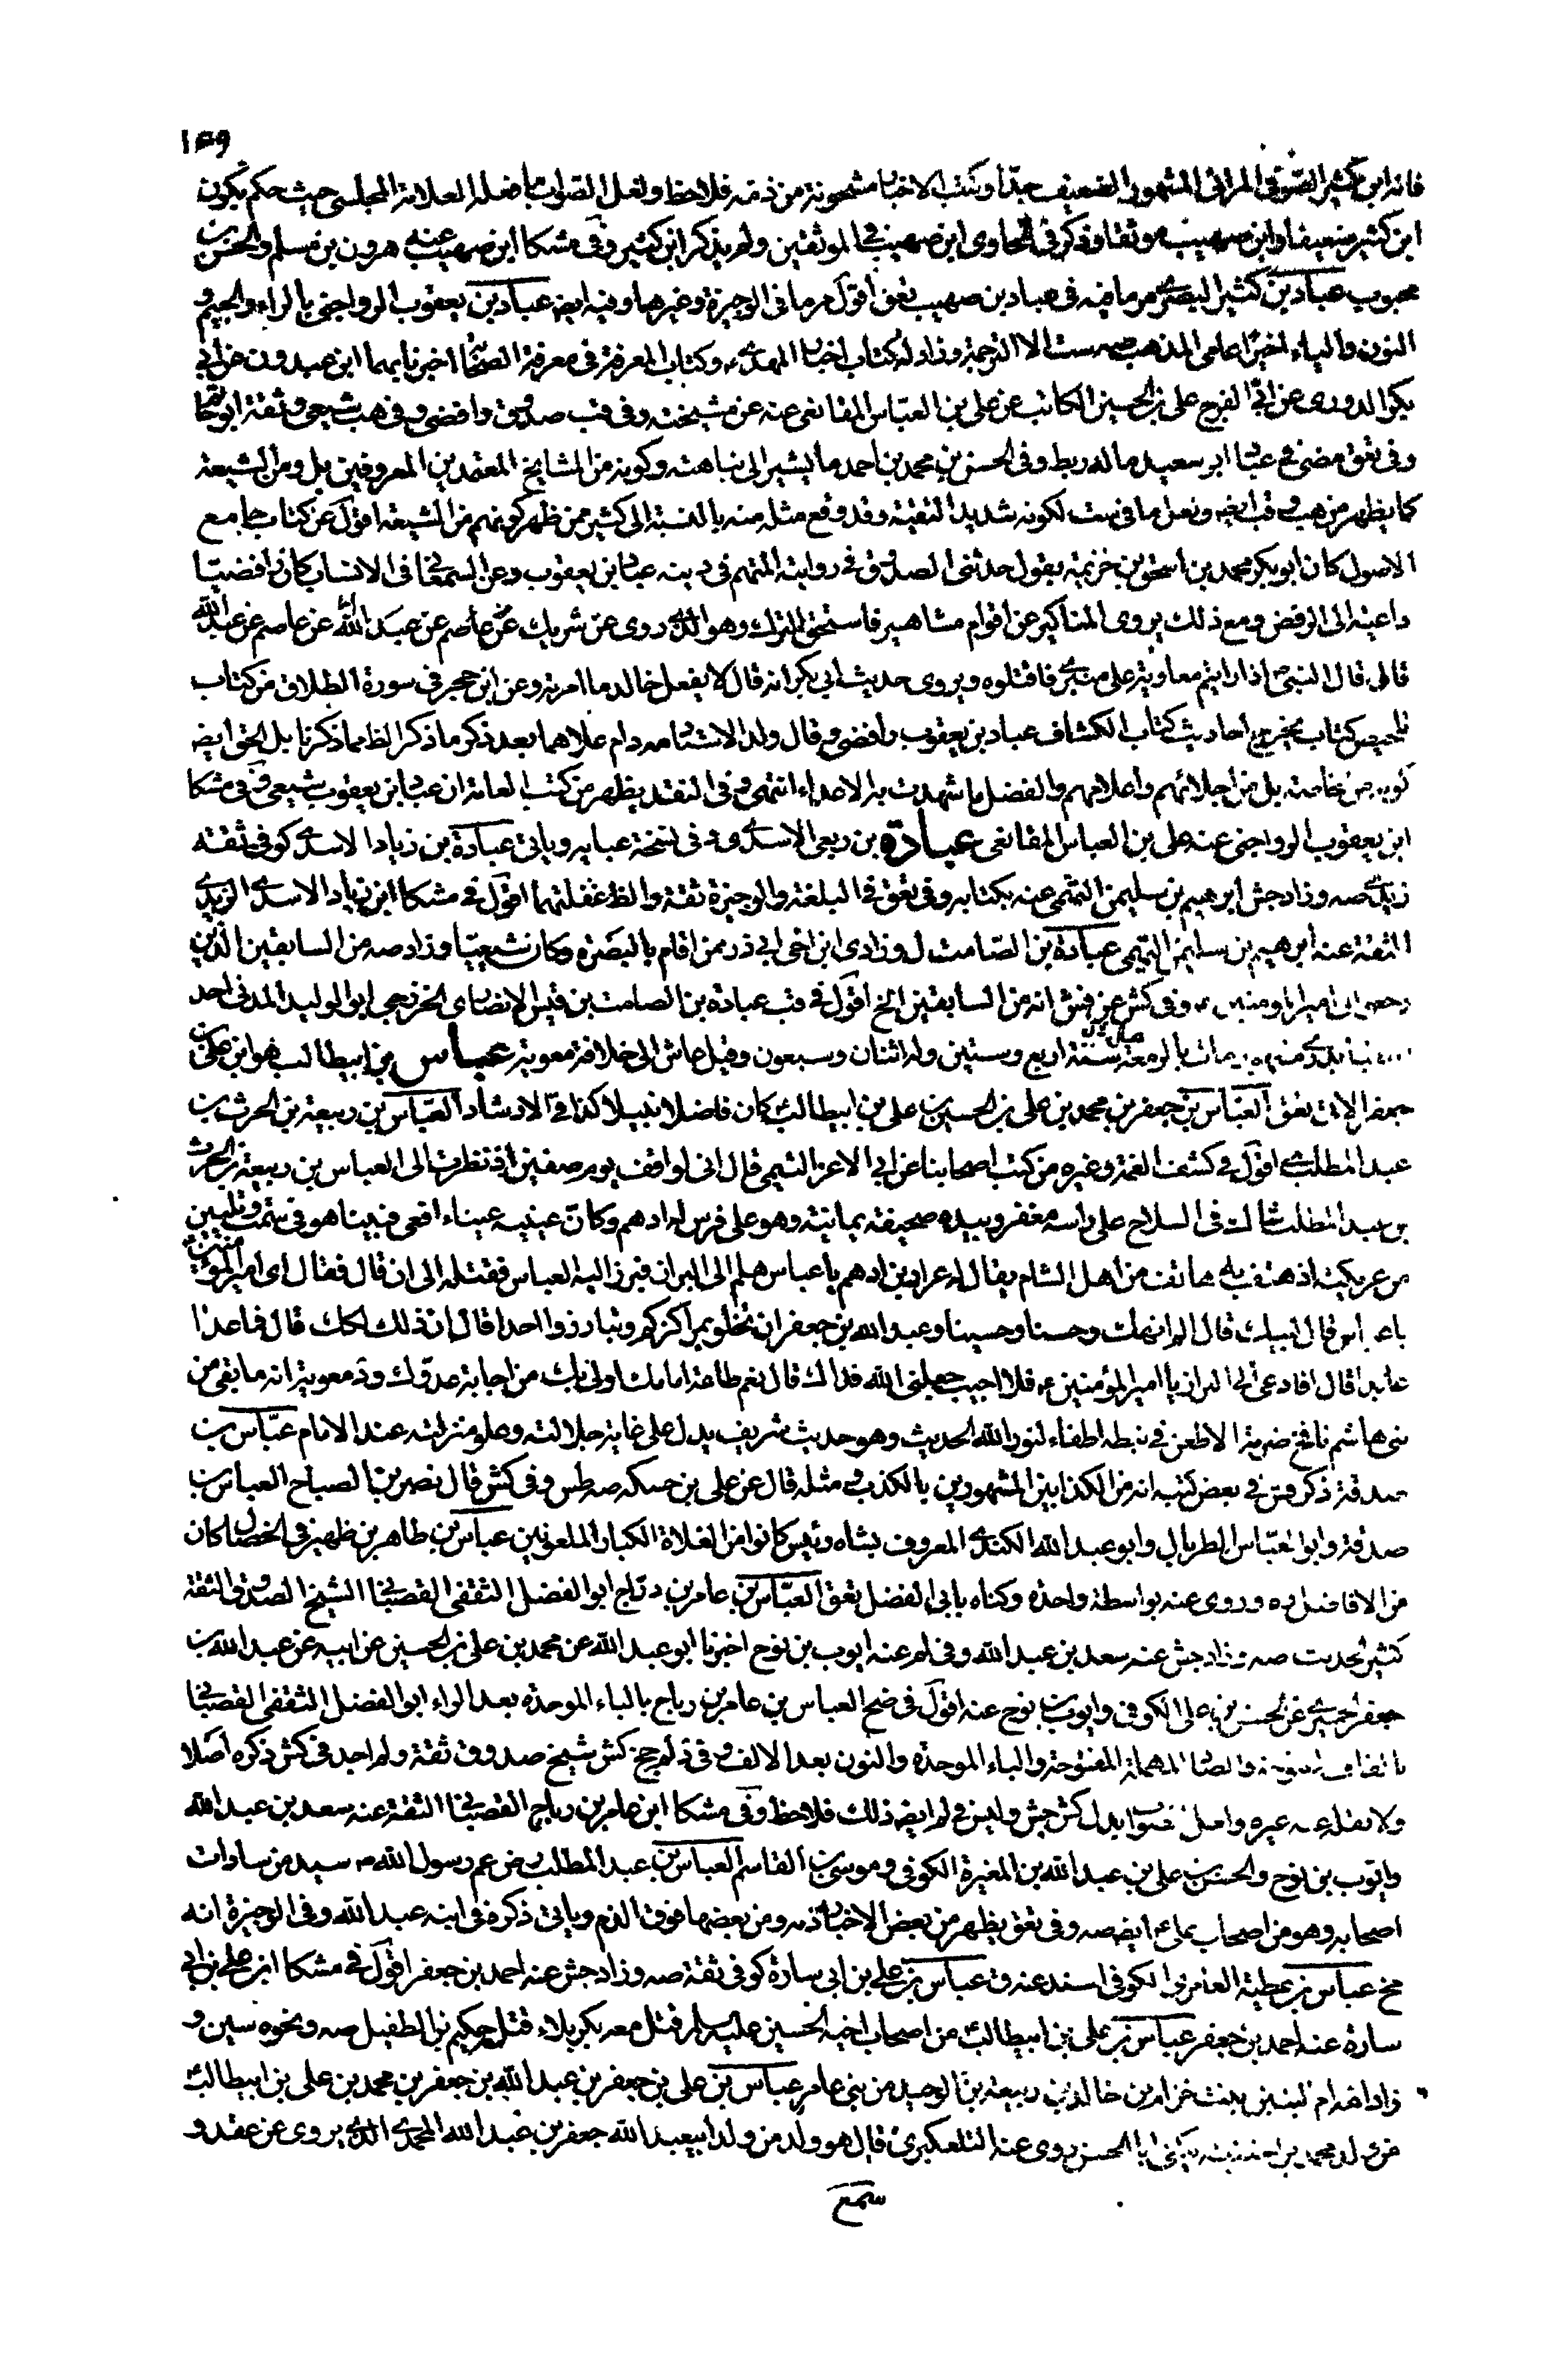 ١٥٩
فانه ابن كثير الصوفي المرائى المشهور الضعيف جدّا وكتب الاخبار مشحونة من ذمّه فلاحظ ولعل الصواب ما فعله العلامة المجلسى حيث حكم بكون
ابن كثير ضعيفا وابن صهيب موثقا وذكر في الحاوى ابن صهيب في الموثقين ولم يذكر ابن كثير وفي مشكا ابن صهيب عنه هرون بن مسلم والحسن بن
محبوب عباد بن كثير البصرى مر ما فيه في عباد بن صهيب تعق اقول مر ما في الوجيزة وغيرها وفيه ايضا عباد بن يعقوب الرواجنى بالراء والجيم و
النون والياء اخيرا عامى المذهب صه ست الا الترجمة وزاد له كتاب اخبار المهدى وكتاب المعرفة في معرفة الصحابة اخبرنا بهما ابن عبدون عن ابي
بكر الدورى عن ابي الفرج على بن الحسين الكاتب عن على بن العباس المقانعى عنه عن مشيخته وفي قب صدوق رافضى وفي هب شيعى وثقه ابو حاتم
وفي تعق مضى في عباد ابو سعيد ما له ربط وفي الحسن بن محمد بن احمد ما يشير الى نباهته وكونه من المشايخ المعتمدين المعروفين بل ومن الشيعة
كما يظهر من هب وقب ايضا ولعل ما في ست لكونه شديد التقية وقد وقع مثله منه بالنسبة الى كثير ممن ظهر كونهم من الشيعة اقول عن كتاب جامع
الاصول كان ابو بكر محمد بن اسحق بن خزيمة يقول حدثنى الصدوق في روايته المتهم في دينه عباد بن يعقوب وعن السمعانى في الانساب كان رافضيّا
داعية الى الرفض ومع ذلك يروى المناكير عن اقوام مشاهير فاستحق الترك وهو الذى روى عن شريك عن عاصم عن عبد الله
قال قال النبى اذا رايتم معاوية على منبرى فاقتلوه ويروى حديث ابى بكر انه قال لا يفعل خالد ما امر به وعن ابن حجر في سورة الطلاق من كتاب
تلخيص كتاب تخريج احاديث كتاب الكشاف عباد بن يعقوب رافضى وقال ولد الاستاد دام علاهما بعد ذكر ما ذكر الظ مما ذكرنا بل الحق ايضا
كونه من خاصته بل من اجلائهم واعلامهم والفضل ما شهدت به الاعداء انتهى وفي النقد يظهر من كتب العامة ان عباد بن يعقوب شيعى وفي مشكا
ابن يعقوب الرواجنى عنه على بن العباس المقانعى عبادة بن ربعى الاسدى ى وفي نسخة عباية وياتى عبادة بن زياد الاسدى كوفى ثقة
زيدى صه وزاد جش ابرهيم بن سليمن التيمى عنه بكتابه وفي تعق في البلغة والوجيزة ثقة والظ غفلتهما اقول في مشكا ابن زياد الاسدى الزيدى
الثقة عنه ابرهيم بن سليمن التيمى عبادة بن الصامت ل وزاد ى ابن اخى ابي ذر ممن اقام بالبصرة وكان شيعيّا وزاد صه من السابقين الذين
رجعوا الى امير المومنين وفي كش عن فش انه من السابقين الخ اقول في قب عبادة بن الصامت بن قيس الانصارى الخزرجى ابو الوليد المدنى احد
النقباء بدرى مات بالرملة سنة اربع وستين وله اثنتان وسبعون وقيل عاش الى خلافة معوية عباس بن ابيطالب هو ابن على بن
جعفر الاتى تعق العباس بن جعفر بن محمد بن على بن الحسين بن على بن ابيطالب كان فاضلا نبيلا كذا في الارشاد العباس بن ربيعة بن الحرث بن
عبد المطلب اقول في كشف الغمة وغيره من كتب اصحابنا عن ابي الاعز التيمى قال انى لواقف يوم صفين اذ نظرت الى العباس بن ربيعة بن الحرث
بن عبد المطلب شاك في السلاح على راسه مغفر وبيده صحيفة يمانية وهو على فرس له ادهم وكان عينيه عينا افعى فبينا هو في سمت وتليين
من عريكته اذ هتف به هاتف من اهل الشام يقال له عرار بن ادهم يا عباس هلم الى البراز فبرز اليه العباس فقتله الى ان قال فقال اى امير المؤمنين
يا عباس قال لبيك قال الم انهك وحسنا وحسينا وعبد الله بن جعفر ان تخلو بمراكزكم وتبارزوا احدا قال ان ذلك لكك قال فما عدا
مما بدا قال افادعى الى البراز يا امير المؤمنين فلا اجيب جعلنى الله فداك قال نعم طاعة امامك اولى بك من اجابة عدوّك ودّ معوية انه ما بقى من
بنى هاشم نافخ ضرمة الا طعن في نيطه اطفاء لنور الله الحديث وهو حديث شريف يدل على غاية جلالته وعلو منزلته عند الامام عباس بن
صدقة ذكر فش في بعض كتبه انه من الكذابين المشهورين بالكذب ومثله قال عن على بن حسكه صه طس وفي كش قال نصر بن الصباح العباس بن
صدقة وابو العباس الطربال وابو عبد الله الكندى المعروف بشاه رئيس كانوا من الغلاة الكبار الملعونين عباس بن طاهر بن ظهير في الخصال كان
من الافاضل ره وروى عنه بواسطة واحدة وكناه بابى الفضل تعق العباس بن عامر بن رباح ابو الفضل الثقفى القصبانى الشيخ الصدوق الثقة
كثير الحديث صه وزاد جش عنه سعد بن عبد الله وفي لم عنه ايوب بن نوح اخبرنا ابو عبد الله عن محمد بن على بن الحسين عن ابيه عن عبد الله بن
جعفر الحميرى عن الحسن بن على الكوفى وايوب بن نوح عنه اقول في ضح العباس بن عامر بن رباح بالباء الموحدة بعد الراء ابو الفضل الثقفى القصبانى
بالقاف المفتوحة والصاد المهملة المفتوحة والباء الموحدة والنون بعد الالف وفي د لم جخ كش شيخ صدوق ثقة ولم اجد في كش ذكره اصلا
ولا نقله عنه غيره ولعل صوابه بدل كش جش وليس في لم ايضا ذلك فلاحظ وفي مشكا ابن عامر بن رباح القصبانى الثقة عنه سعد بن عبد الله
وايوب بن نوح والحسن بن على بن عبد الله بن المغيرة الكوفى وموسى بن القاسم العباس بن عبد المطلب رض عم رسول الله ص سيد من سادات
اصحابه وهو من اصحاب على ع ايضا صه وفي تعق يظهر من بعض الاخبار ذمه ومن بعضها فوق الذم وياتى ذكره في ابنه عبد الله وفي الوجيزة انه
مخ عباس بن عطية العامرى الكوفى اسند عنه ق عباس بن على بن ابى سارة كوفى ثقة صه وزاد جش عنه احمد بن جعفر اقول في مشكا ابن على بن ابي
سارة عنه احمد بن جعفر عباس بن على بن ابيطالب من اصحاب اخيه الحسين عليه السلم قتل معه بكربلاء قتله حكيم بن الطفيل صه ونحوه سين و
زاد امه ام البنين بنت خزام بن خالد بن ربيعة بن الوحيد من بنى عامر عباس بن على بن جعفر بن عبد الله بن جعفر بن محمد بن على بن ابيطالب
من ولد محمد بن الحنفية يكنى ابا الحسن روى عنه التلعكبرى قال هو ولد من ولد ابيعبد الله جعفر بن عبد الله المحمدى الذى يروى عن عقده و
سمع